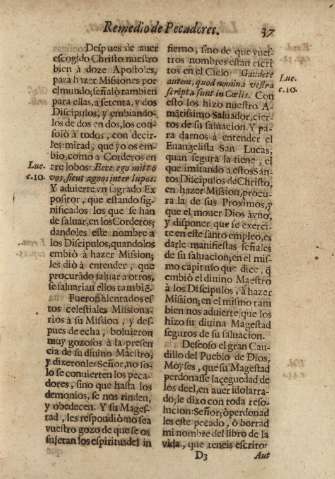 Remedio de Pecadores. 37
Despues de auer
escogido Christo nuestro
bien à doze Apostoles,
para hazer Missiones por
el mundo, señalò tambien
para ellas, a setenta, y dos
Discipulos, y embiando-
los de dos en dos, los con-
solò à todos, con dezir-
les mirad, que yo os em-
bio, como a Corderos en
tre lobos: Ecce ego mitto
vos, sicut agnos inter lupos:
Y aduierte vn sagrado Ex
positor, que estando sig-
nificados los que se han
de saluar, en los Corderos;
dandoles este nombre a
los Discipulos, quando los
embiò à hazer Mission;
les diò à entender, que
procurando saluar a otros,
se saluarian ellos tambiē.
Fueron alentados es-
tos celestiales Missiona-
rios a su Mission, y des-
pues de echa, boluieron
muy gozosos à la presen
cia de su diuino Maestro,
y dixeronle: Señor, no so-
lo se conuierten los peca-
dores, sino que hasta los
demonios, se nos rinden,
y obedecen. Y su Mages-
tad, les respondiò no sea
vuestro gozo de que se os
sujetan los espiritus del in
Luc.
c.10.
fierno, sino de que vues-
tros nombres estàn escri
tos en el Cielo Gaudete
autem, quod nomina vestra
scripta sunt in Cœlis. Con
esto los hizo nuestro A-
mantissimo Saluador, cier-
tos de su saluacion. Y pa-
ra darnos à entender el
Euangelista San Lucas,
quan segura la tiene, el
que imitando a estos San-
tos Discipulos de Christo,
en hazer Mission, procu-
ra la de sus Proximos, y
que el mouer Dios à vno,
y disponer, que se exerci-
te en este santo empleo, es
darle manifiestas señales
de su saluacion, en el mis-
mo capitulo que dice, q̄
embiò el diuino Maestro
à los Discipulos, à hazer
Mission, en el mismo tam
bien nos aduierte, que los
hizo su diuina Magestad
seguros de su saluacion.
Deseoso el gran Cau-
dillo del Pueblo de Dios,
Moyses, que su Magestad
perdonasse la ceguedad de
los de el, en auer idolatra-
do, le dixo con toda reso-
lucion: Señor, ò perdonad
les este pecado, ò borrad
mi nombre del libro de la
vida, que teneis escrito:
Luc.
c.10.
D3 Aut